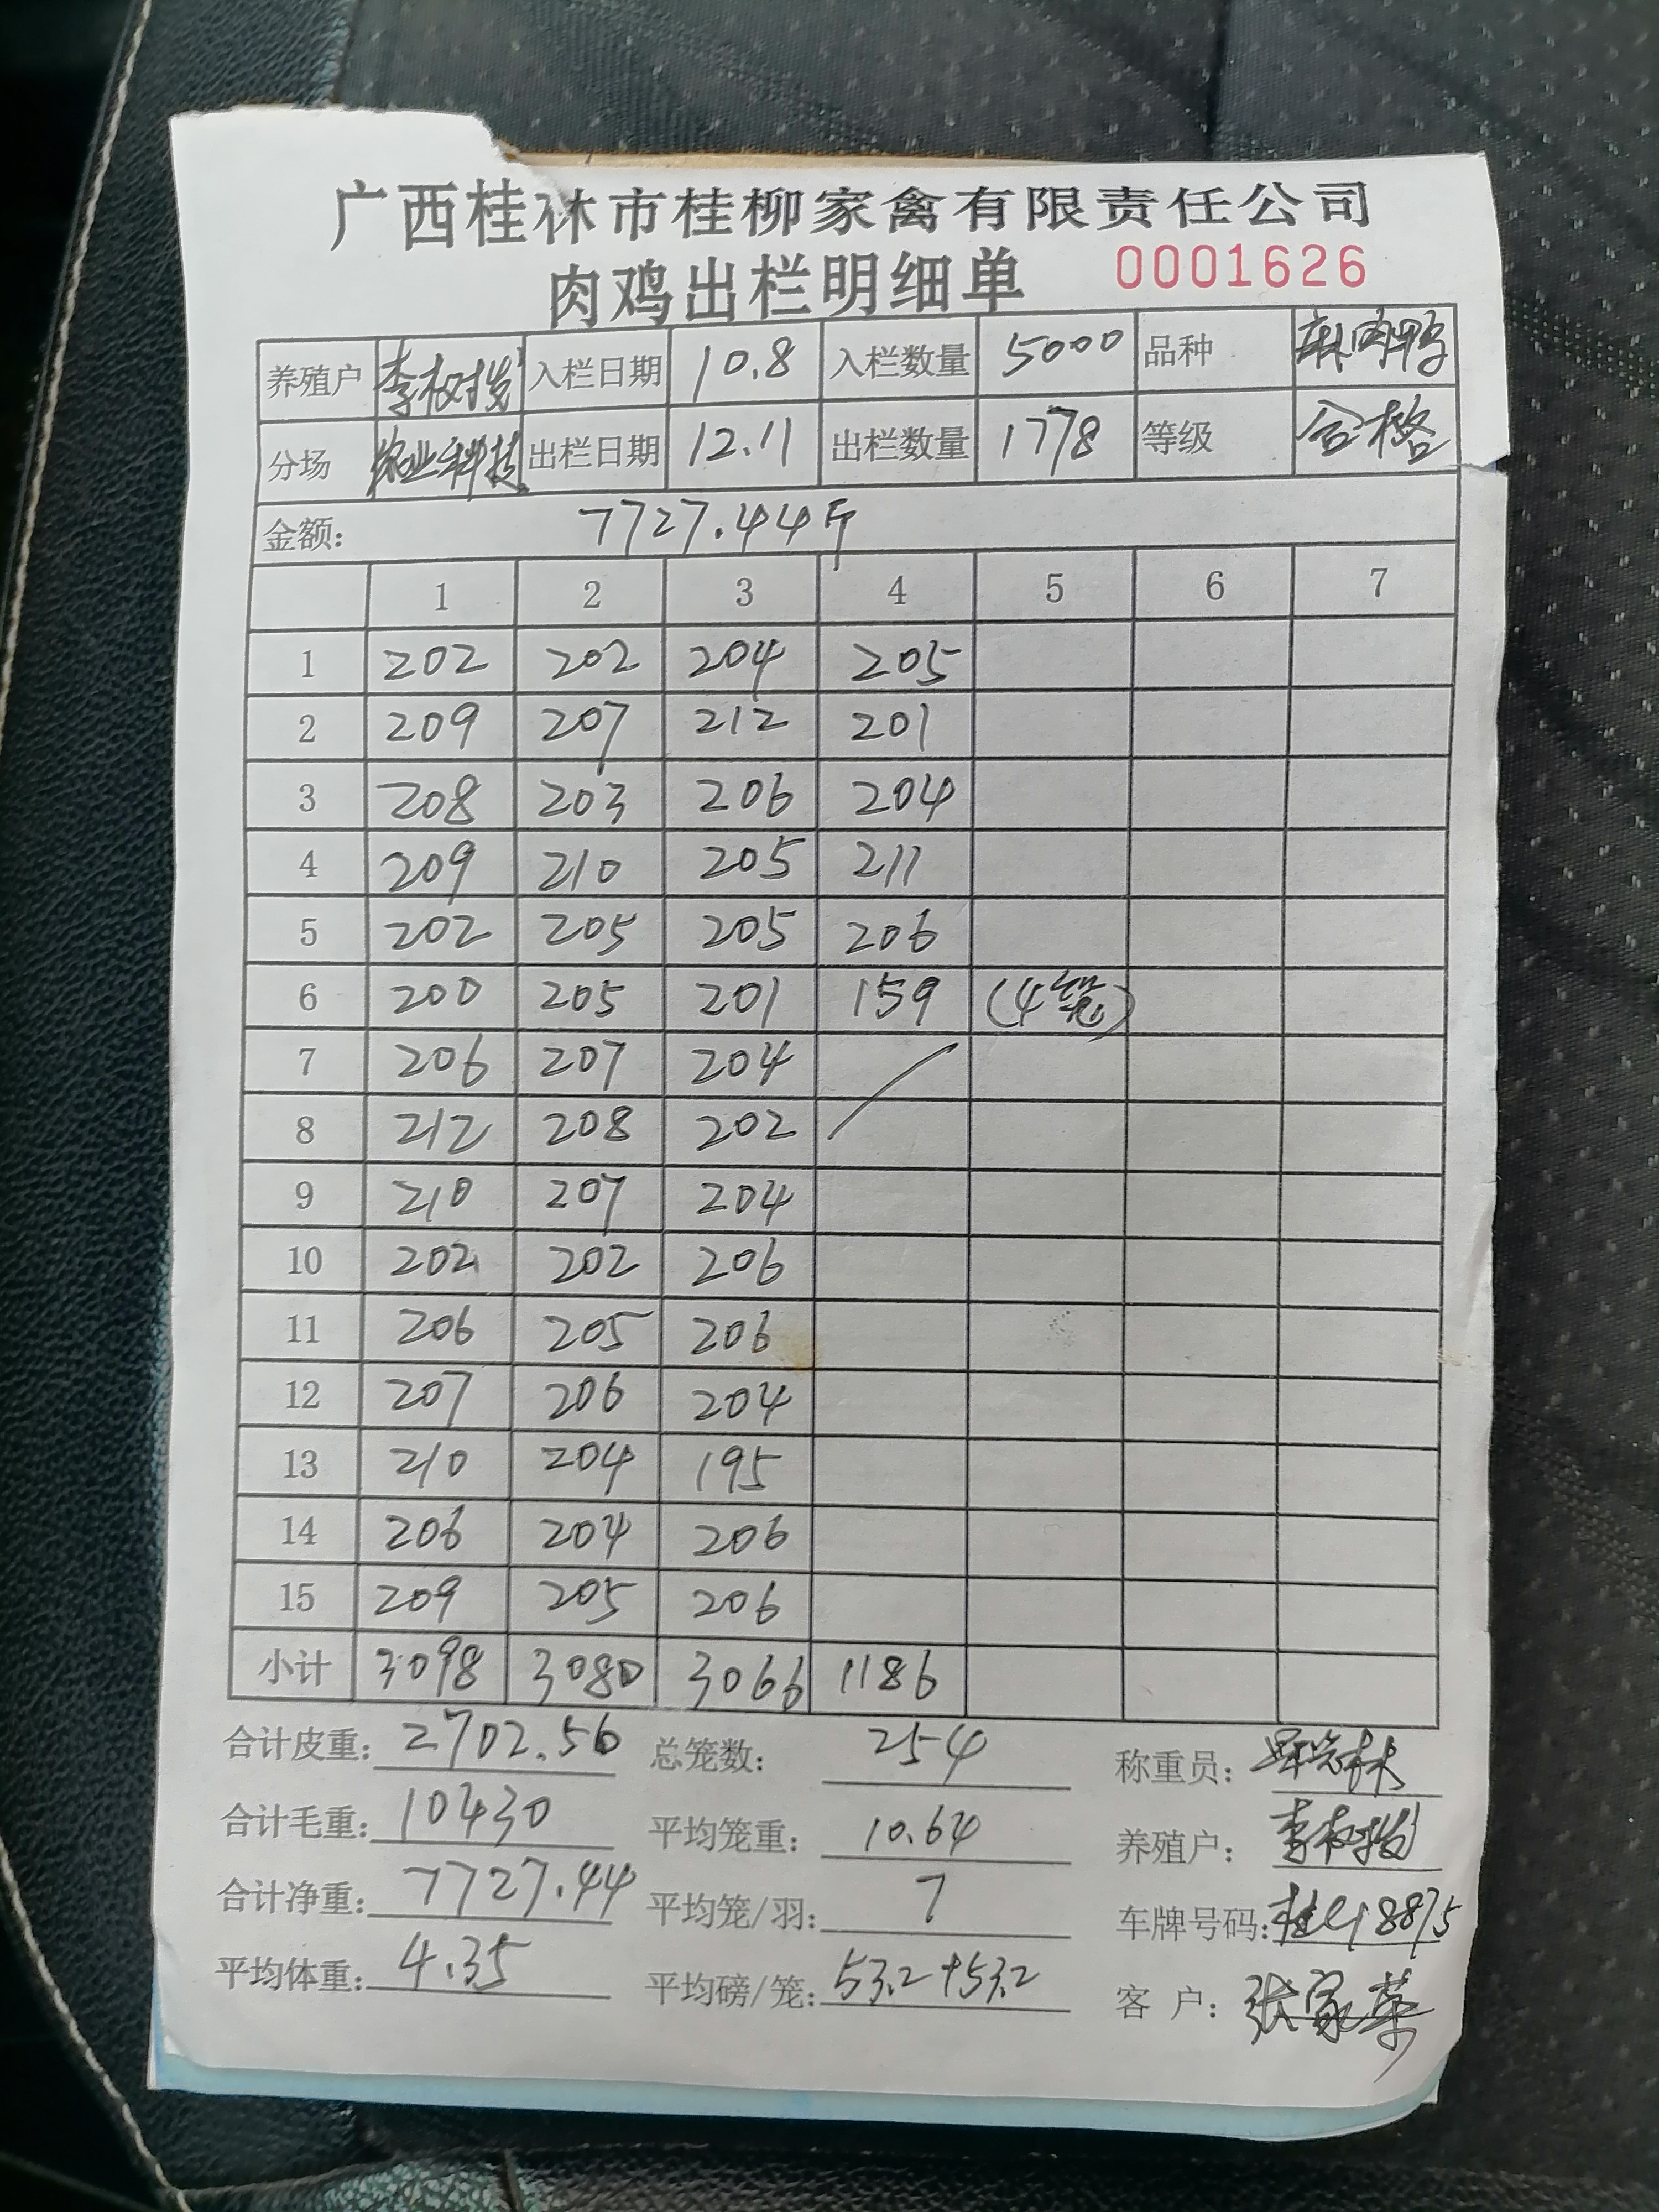 广西桂林市桂柳家禽有限责任公司
肉鸡出栏明细单 0001626
养殖户 李树发 入栏日期 10.8 入栏数量 5000 品种 麻肉鸭
分场 农业科技 出栏日期 12.11 出栏数量 1778 等级 合格
金额: 7727.44斤
1 2 3 4 5 6 7
1 202 202 204 205
2 209 207 212 201
3 208 203 206 204
4 209 210 205 211
5 202 205 205 206
6 200 205 201 159 (4笼)
7 206 207 204
8 212 208 202
9 210 207 204
10 202 202 206
11 206 205 206
12 207 206 204
13 210 204 195
14 206 204 206
15 209 205 206
小计 3098 3080 3066 1186
合计皮重: 2702.56 总笼数: 254 称重员:
合计毛重: 10430 平均笼重: 10.64 养殖户: 李树发
合计净重: 7727.44 平均笼/羽: 7 车牌号码:
平均体重: 4.35 平均磅/笼: 53.2+53.2 客 户: 张家